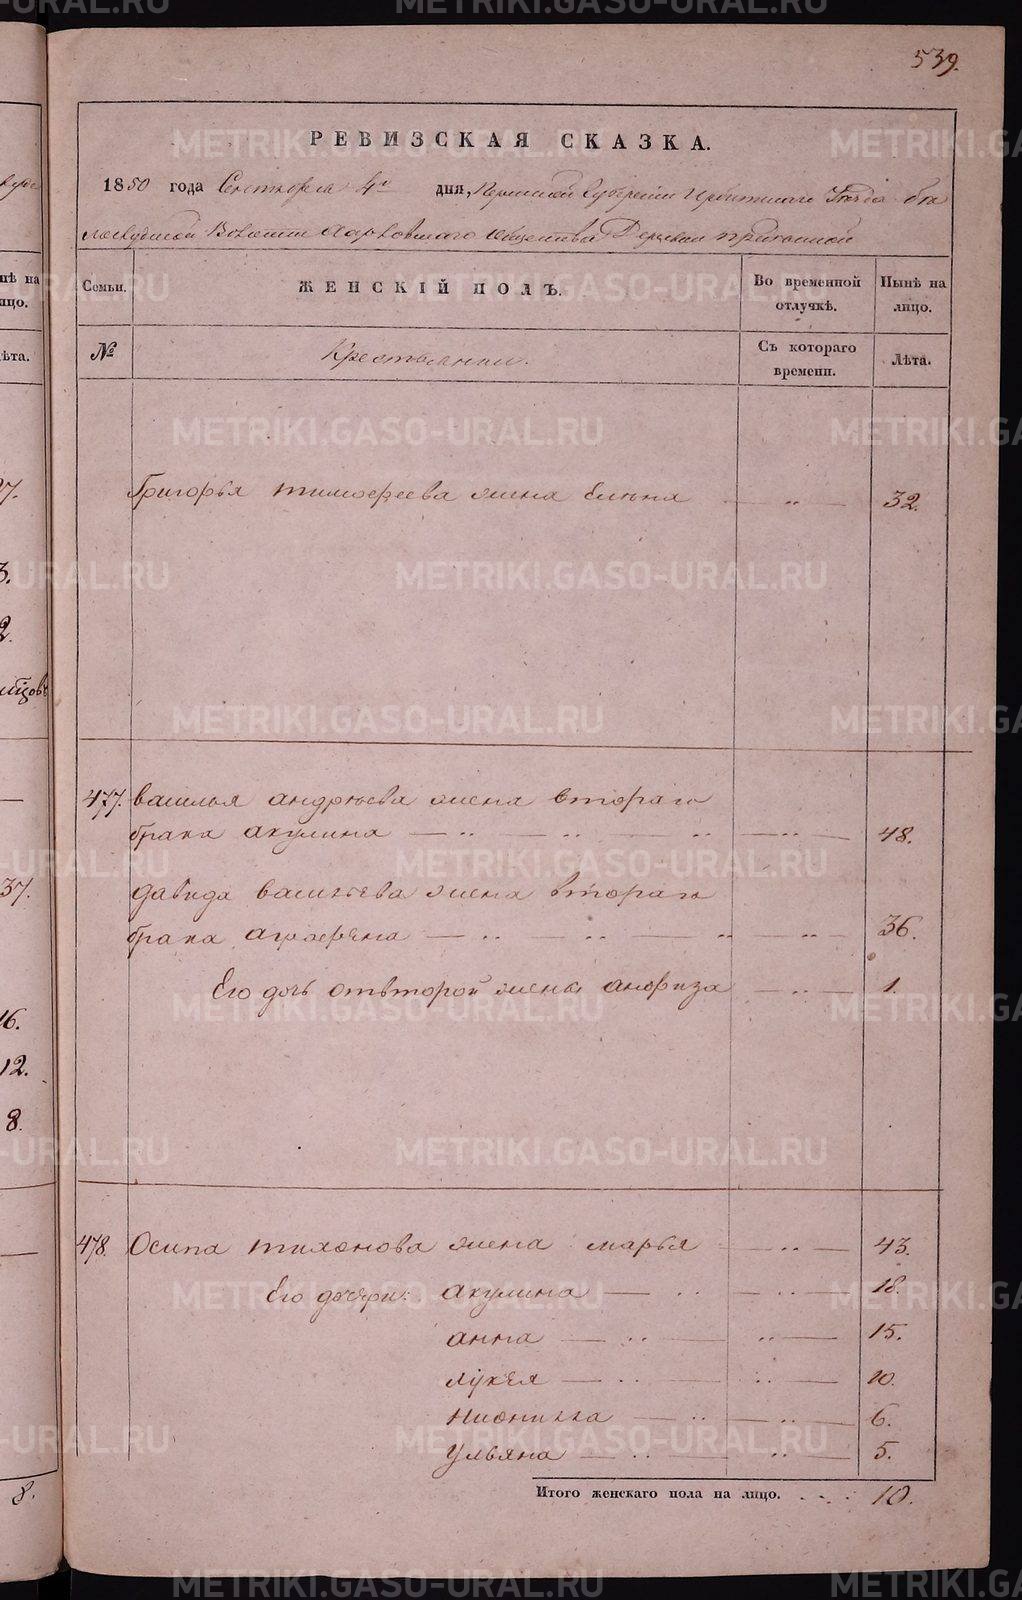 539.
РЕВИЗСКАЯ СКАЗКА.
1850 года Сентября 4го дня, Пермской Губернии Ирбитскаго Уезда Бе
лослудской Волости Харловскаго общества Деревни
Семьи. ЖЕНСКІЙ ПОЛЪ. Во временной отлучкѣ. Нынѣ на лицо.
№ Крестьянки. Съ котораго времени. Лѣта.
Григорья тимофеева жена Елена — „ — 32.
477. василья андреева жена втораго
брака акулина — „ — 48.
давида васильева жена втораго
брака аграфена — „ — 36.
Его дочь отвторой жены анфиза — „ — 1.
478. Осипа тихонова жена марья — „ — 43.
Его дочери: акулина — „ — 18.
анна — „ — 15.
лукѣя — „ — 10.
— „ — 6.
ульяна — „ — 5.
Итого женскаго пола на лицо. . . . . 10.
нѣ на
ицо.
ѣта.
27.
3.
2.
37.
16.
12.
8.
8.
METRIKI.GASO-URAL.RU